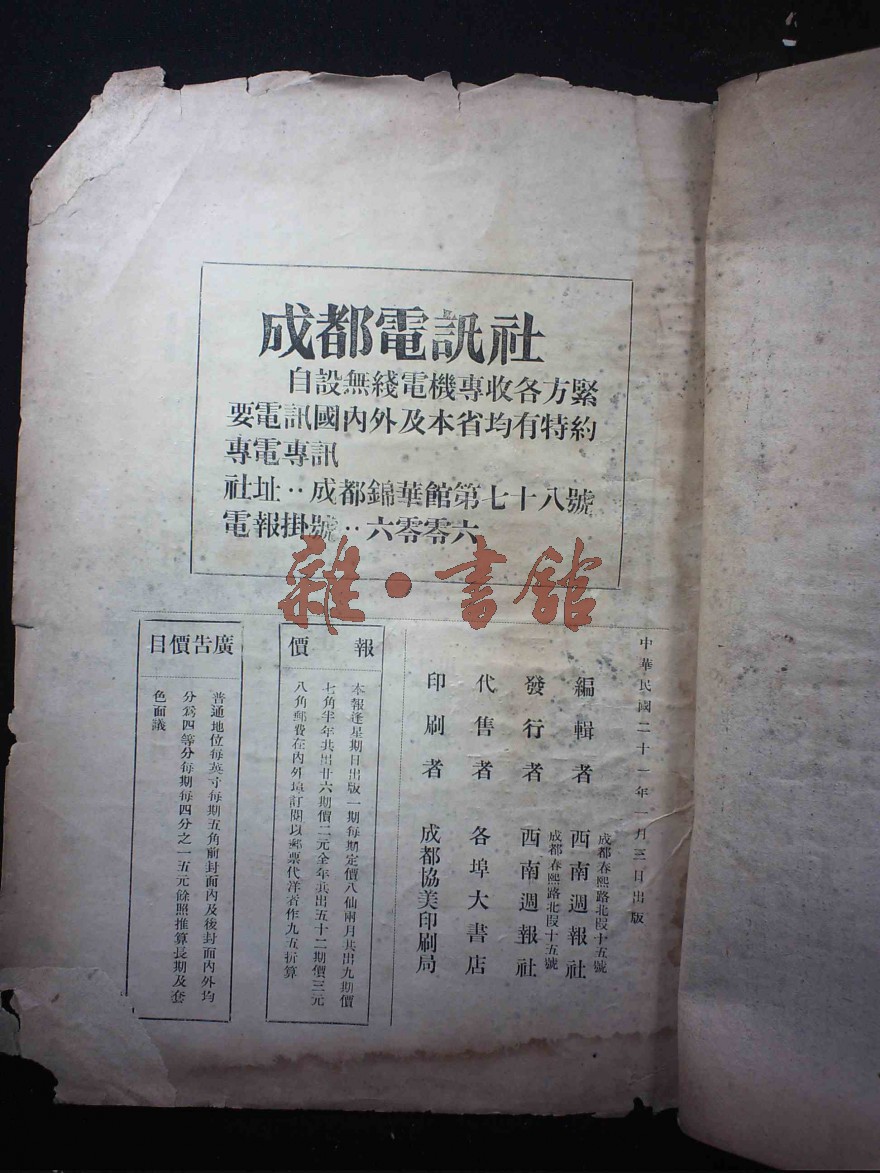 成都電訊社
自設無綫電機專收各方緊
要電訊國內外及本省均有特約
專電專訊
社址‥成都錦華館第七十八號
電報掛號‥六零零六
雜·書館
中華民國二十一年一月三日出版
成都春熙路北段十五號
編輯者 西南週報社
成都春熙路北段十五號
發行者 西南週報社
代售者 各埠大書店
印刷者 成都協美印刷局
報價
本報逢星期日出版一期每期定價八仙兩月共出九期價
七角半年共出廿六期價二元全年共出五十二期價三元
八角郵費在內外埠訂閱以郵票代洋者作九五折算
廣告價目
普通地位每英寸每期五角前封面內及後封面內外均
分爲四等分每期每四分之一五元餘照推算長期及套
色面議